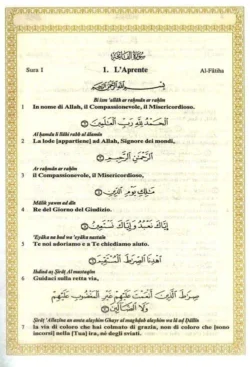 سورة الفاتحة
Sura I 1. L'Aprente Al-Fâtiha
Bi ism 'allâh ar rahmân ar rahîm
1 In nome di Allah, il Compassionevole, il Misericordioso.
الحمد لله رب العالمين
Al hamdu li llâhi rabb al âlamîn
2 La lode [appartiene] ad Allah, Signore dei mondi,
الرحمن الرحيم
Ar rahmân ar rahîm
3 il Compassionevole, il Misericordioso,
مالك يوم الدين
Mâlik yawm ad dîn
4 Re del Giorno del Giudizio.
إياك نعبد وإياك نستعين
'Eyâka na bud wa 'eyâka nastaîn
5 Te noi adoriamo e a Te chiediamo aiuto.
اهدنا الصراط المستقيم
Ihdinâ aç Şirâṭ Al mustaqîm
6 Guidaci sulla retta via,
صراط الذين أنعمت عليهم غير المغضوب عليهم
ولا الضالين
Şirâṭ 'Allazîna an amta alayhim Ghayr al maghḍûb alayhim wa lâ aḍ Ḍâllîn
7 la via di coloro che hai colmato di grazia, non di coloro che [sono
incorsi] nella [Tua] ira, né degli sviati.